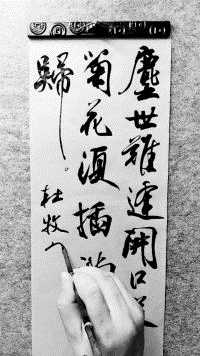 塵世難逢開口笑
菊花須插滿
歸。
杜牧